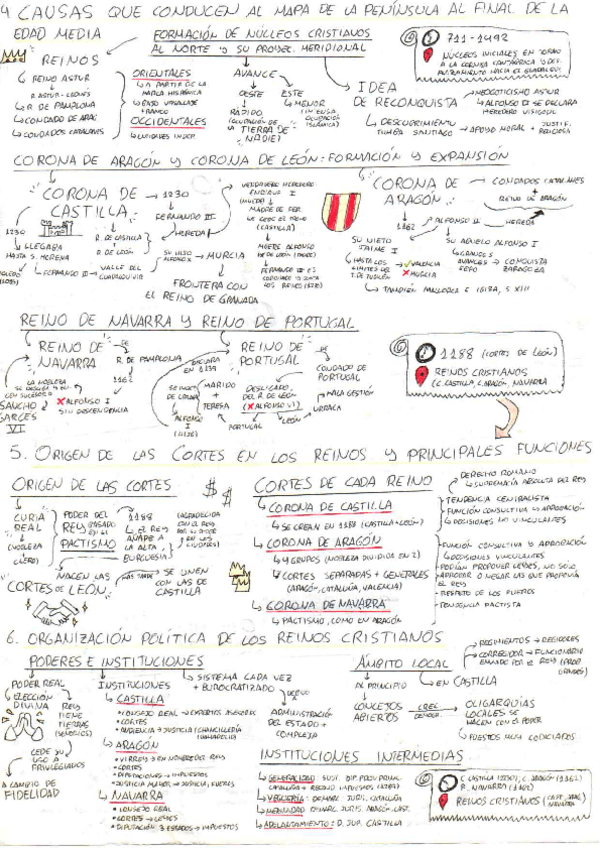 4 CAUSAS QUE CONDUCEN AL MAPA DE LA PENÍNSULA AL FINAL DE LA
EDAD MEDIA
FORMACIÓN DE NÚCLEOS CRISTIANOS
AL NORTE Y SU PROYEC. MERIDIONAL
711-1492
NÚCLEOS INICIALES EN TORNO
A LA CORNISA CANTÁBRICA Y DES
PLAZAMIENTO HACIA EL GUADALQUI
REINOS
REINO ASTUR
R. ASTUR-LEONÉS
R. DE PAMPLONA
CONDADO DE ARAG
CONDADOS CATALANES
ORIENTALES
A PARTIR DE LA
MARCA HISPÁNICA
BAJO VASALLAJE
FRANCO
OCCIDENTALES
UNIDADES INDEP.
AVANCE
OESTE
ESTE
RÁPIDO
(OCUPACIÓN DE
LA TIERRA DE
NADIE)
MENOR
(INTENSA
OCUPACIÓN
ISLÁMICA)
IDEA
DE RECONQUISTA
NEOGOTICISMO ASTUR
ALFONSO II SE DECLARA
HEREDERO VISIGODO
DESCUBRIMIENTO
TUMBA SANTIAGO → APOYO MORAL + JUSTIF.
RELIGIOSA
CORONA DE ARAGÓN Y CORONA DE LEÓN: FORMACIÓN Y EXPANSIÓN
CORONA DE
CASTILLA
1230
FERNANDO III
HEREDA
R. DE CASTILLA
R. DE LEÓN
1230
LLEGABA
HASTA S. MORENA
FERNANDO III → VALLE DEL
GUADALQUIVIR
SU HIJO
ALFONSO X → MURCIA
FRONTERA CON
EL REINO DE GRANADA
VERDADERO HEREDERO
ENRIQUE I
(MUERE)
MADRE DE FER
(CASTILLA)
MUERE ALFONSO
CORONA DE
ARAGÓN
CONDADOS CATALANES
+
REINO DE ARAGÓN
1162
ALFONSO II
HEREDA
SU NIETO
JAIME I
HASTA LOS
LÍMITES DEL
VALENCIA
MURCIA
SU ABUELO ALFONSO I
GRANDES
AVANCES → CONQUISTA
ZARAGOZA
TAMBIÉN MALLORCA E IBIZA, S XIII
REINO DE NAVARRA Y REINO DE PORTUGAL
REINO DE
NAVARRA
DE
R. DE PAMPLONA
1162
ALFONSO I
SIN DESCENDENCIA
LA NOBLEZA
SANCHO
GARCÉS
VI
REINO DE
PORTUGAL
DE
CONDADO DE
PORTUGAL
EN 1139
MARIDO
+
TERESA
ALFONSO
I
PORTUGAL
DESLIGADO
DEL R. DE LEÓN
(ALFONSO VI)
LEÓN
MALA GESTIÓN
URRACA
1188 (CORTES DE LEÓN)
REINOS CRISTIANOS
(C. CASTILLA, C. ARAGÓN, NAVARRA
5. ORIGEN DE LAS CORTES EN LOS REINOS Y PRINCIPALES FUNCIONES
ORIGEN DE LAS CORTES
$ $
CURIA
REAL
(NOBLEZA
Y
CLERO)
PODER DEL
REY BASADO
EN EL
PACTISMO
1188
EL REY
AÑADE A
LA ALTA
BURGUESÍA
NACEN LAS
CORTES DE LEÓN
MÁS TARDE
SE UNEN
CON LAS DE
CASTILLA
CORTES DE CADA REINO
CORONA DE CASTILLA
SE CREAN EN 1188 (CASTILLA + LEÓN)
DERECHO ROMANO
SUPREMACÍA ABSOLUTA DEL REY
TENDENCIA CENTRALISTA
FUNCIÓN CONSULTIVA Y APROBACIÓN
DECISIONES NO VINCULANTES
CORONA DE ARAGÓN
4 GRUPOS (NOBLEZA DIVIDIDA EN 2)
CORTES SEPARADAS + GENERALES
(ARAGÓN, CATALUÑA, VALENCIA)
CORONA DE NAVARRA
PACTISMO, COMO EN ARAGÓN
FUNCIÓN CONSULTIVA Y APROBACIÓN
DECISIONES VINCULANTES
PODÍAN PROPONER LEYES, NO SOLO
APROBAR O NEGAR LAS QUE PROPONÍA
EL REY
RESPETO DE LOS FUEROS
TENDENCIA PACTISTA
6. ORGANIZACIÓN POLÍTICA DE LOS REINOS CRISTIANOS
PODERES E INSTITUCIONES
PODER REAL
ELECCIÓN
DIVINA
REY
TIENE
TIERRAS
(SEÑORÍOS)
CEDE SU
USO A
PRIVILEGIADOS
A CAMBIO DE
FIDELIDAD
INSTITUCIONES
CASTILLA
CONSEJO REAL → EXPERTOS ASESORES
CORTES
AUDIENCIA → JUSTICIA (CHANCILLERÍA
ARAGÓN
VIRREY → EN NOMBRE DEL REY
CORTES
DIPUTACIONES → IMPUESTOS
JUSTICIA MAYOR → JUSTICIA, FUEROS
NAVARRA
CONSEJO REAL
CORTES → LEYES
DIPUTACIÓN 3 ESTADOS → IMPUESTOS
SISTEMA CADA VEZ
+ BUROCRATIZADO
DEBIDO
A
ADMINISTRACIÓN
DEL ESTADO +
COMPLEJA
ÁMBITO LOCAL
AL PRINCIPIO
CONCEJOS
ABIERTOS
CREC.
DEMOGR.
EN CASTILLA
REGIMIENTOS → REGIDORES
CORREGIDOR → FUNCIONARIO
ENVIADO POR EL REY
OLIGARQUÍAS
LOCALES SE
HACEN CON EL PODER
PUESTOS MUY CODICIADOS
INSTITUCIONES INTERMEDIAS
GENERALIDAD
VEGUERÍA: DEMAR. JURIS. CATALUÑA
MERINDAD: DEMAR. JURIS. ARAGÓN, CAST.
ADELANTAMIENTO: D. JUR. CASTILLA
C. CASTILLA (1230), C. ARAGÓN (1162)
R. NAVARRA (1162)
REINOS CRISTIANOS (CAST, ARAG,
NAVARRA)